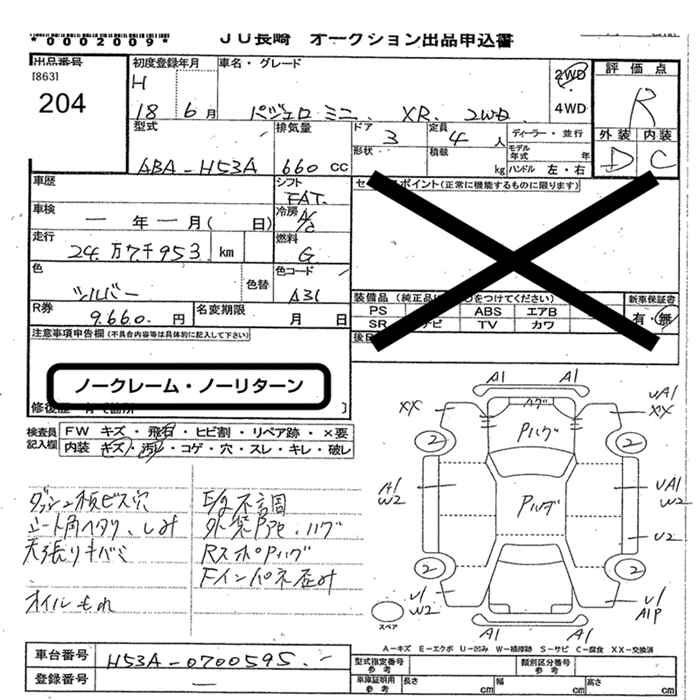 *0002009*
JU長崎 オークション出品申込書
出品番号
[863]
204
初度登録年月
H
18 6月
車名・グレード
パジェロミニ XR 2WD
2WD
4WD
評価点
R
外装 内装
D C
型式
ABA-H53A
排気量
660 CC
ドア 3
定員 4 人
形状
積載 kg
ディーラー・並行
モデル年式 年
ハンドル 左・右
車歴
シフト
FAT
車検
一 年 一 月( 日)
冷房
A/C
走行
24万7千953 km
燃料
G
色
シルバー
色替
色コード
A31
R券
9.660. 円
名変期限
月 日
セ ポイント(正常に機能するものに限ります)
装備品 (純正品 をつけてください)
PS ABS エアB
SR ナビ TV カワ
新車保証書
有・無
注意事項申告欄(不具合内容等は具体的に記入して下さい)
ノークレーム・ノーリターン
検査員記入欄
FW キズ・飛石・ヒビ割・リペア跡・×要
内装 キズ・汚れ・コゲ・穴・スレ・キレ・破レ
ダッシュ横ビス穴
シート角ヘタリ、しみ
天張りキバミ
オイルもれ
E/g不調
外装P8c、ハゲ
RスポPハゲ
Fインパネ歪み
A1 A1
XX
Aグ
Pハゲ
UA1
XX
2 2
A1
W2
Pハゲ
UA1
W2
U2
2 2
U1
W2
U1
A1P
スペア
A1 A1
A-キズ E-エクボ U-凹み W-補修跡 S-サビ C-腐食 XX-交換済
車台番号
H53A-0700595
登録番号
一
型式指定番号 参考
類別区分番号 参考
車庫証明用 参考
長さ cm
幅 cm
高さ cm